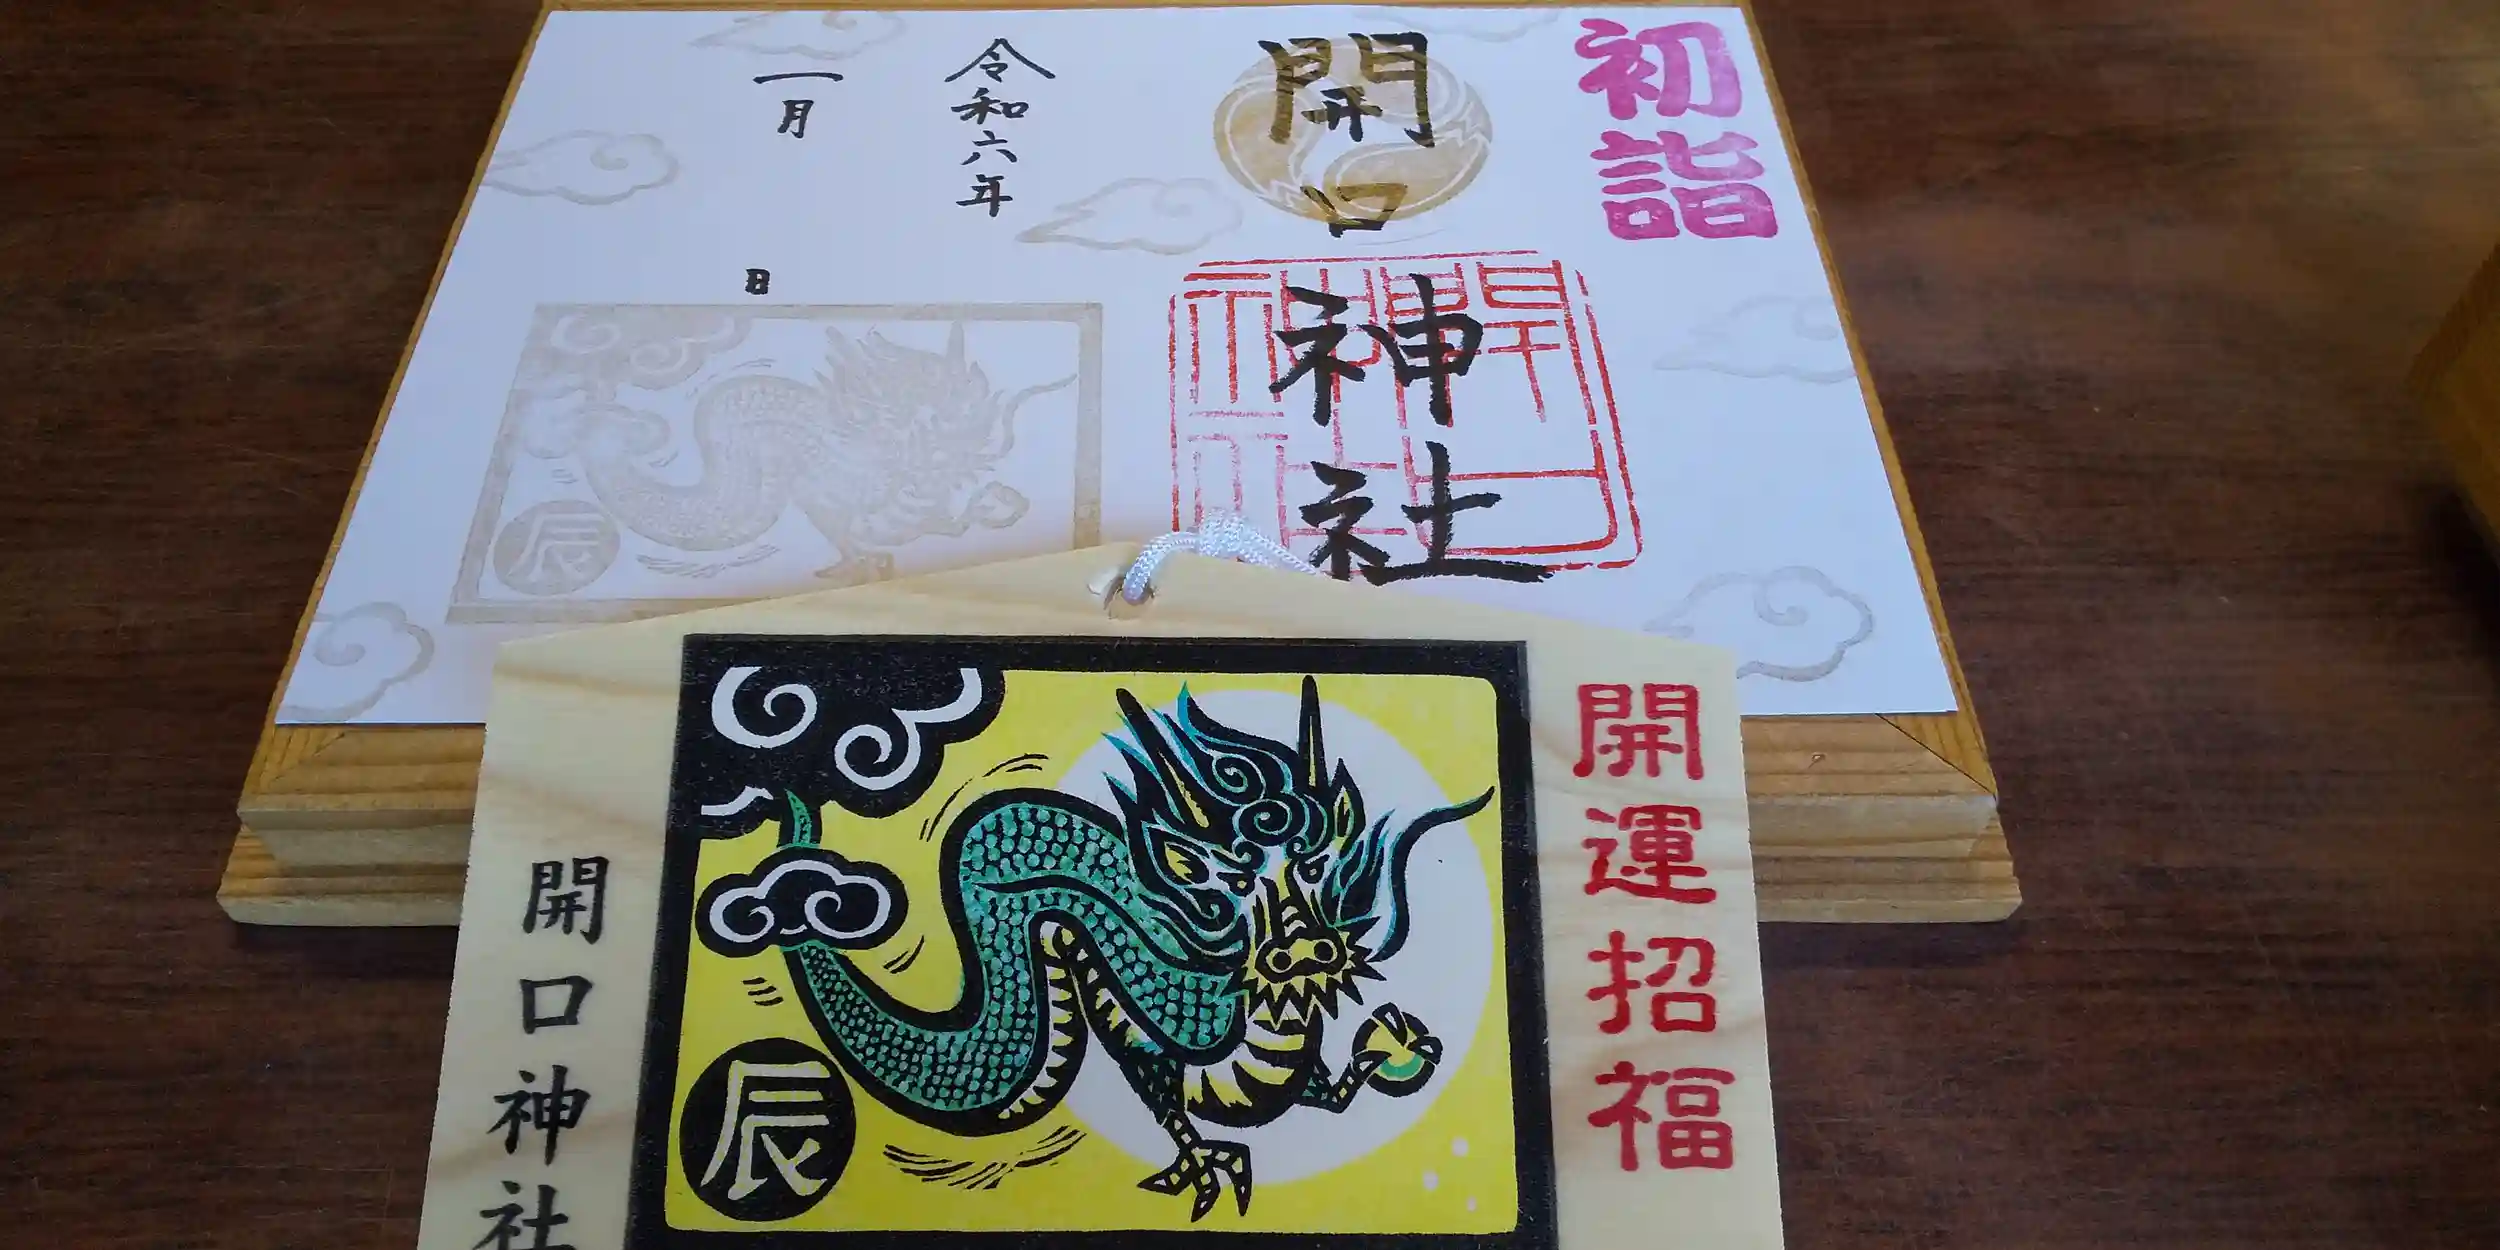 初詣
開口神社
開口神社
令和六年
一月
日
辰
開運招福
辰
開口神社